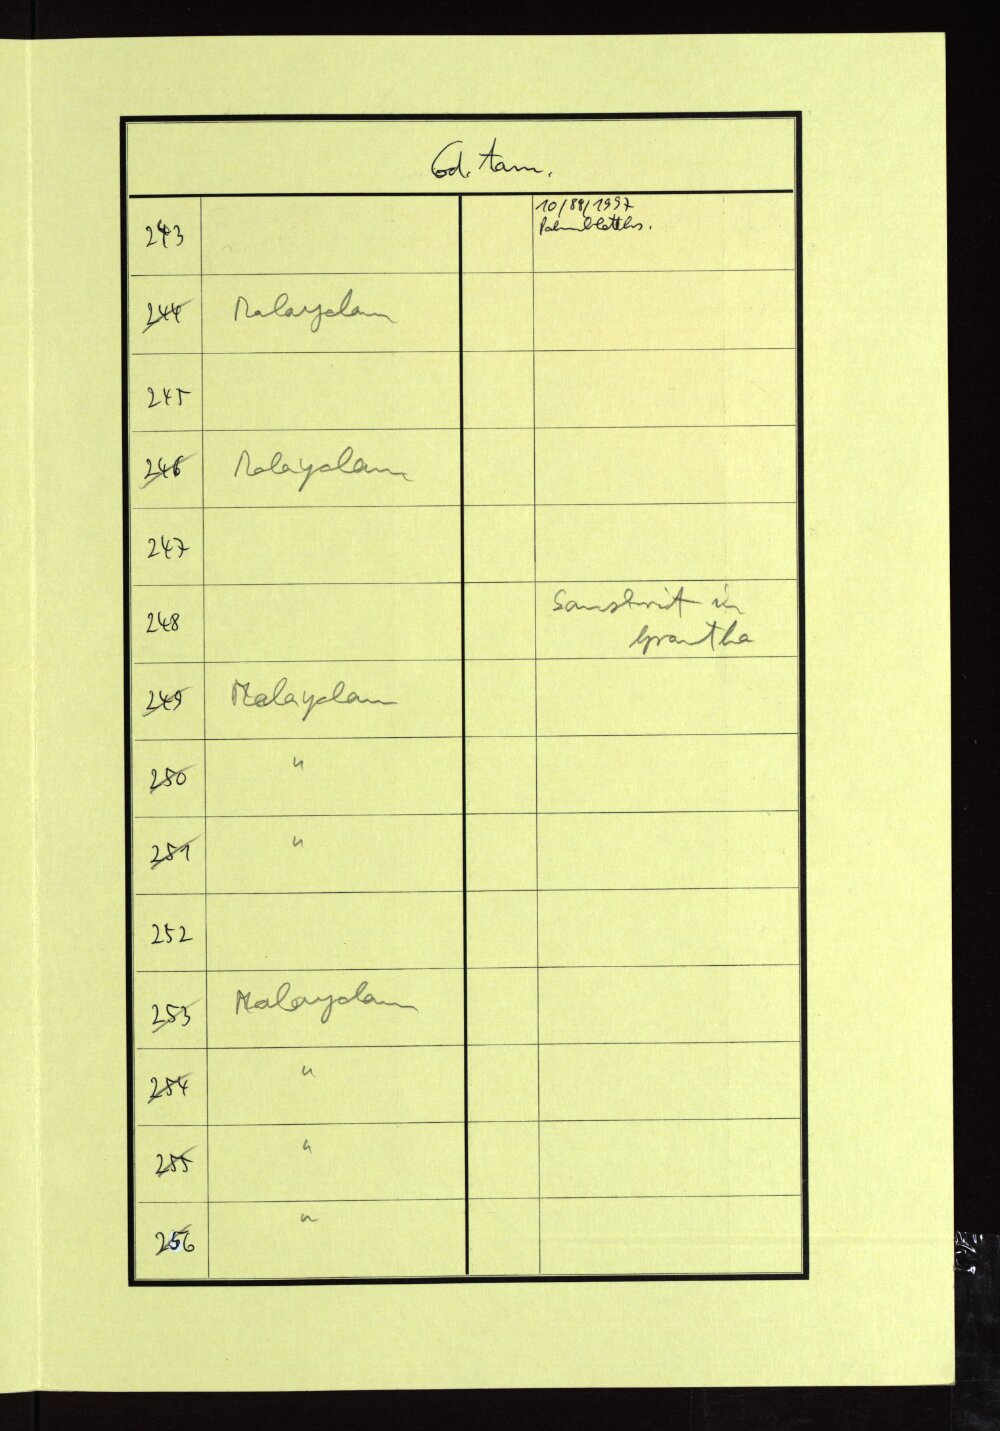 Cod. tam.
243 10/88/1997
Palmblatths.
244 Malayalam
245
246 Malayalam
247
248 Sanskrit in
Grantha
249 Malayalam
250 "
251 "
252
253 Malayalam
254 "
255 "
256 "